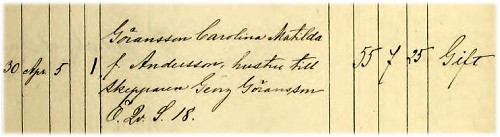 Göransson Carolina Matilda
30 Apr. 5 1 f. Andersson, hustru till 55 7 25 Gift
skepparen Georg Göransson
Ö. Qv. S. 18.